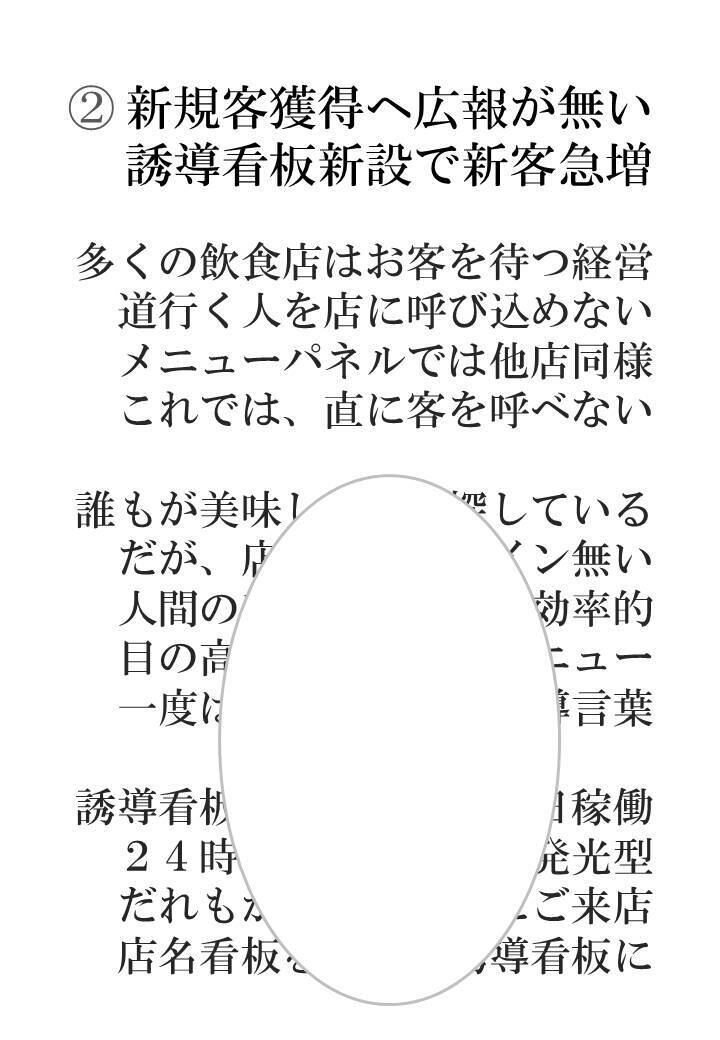 ② 新規客獲得へ広報が無い
誘導看板新設で新客急増
多くの飲食店はお客を待つ経営
道行く人を店に呼び込めない
メニューパネルでは他店同様
これでは、直に客を呼べない
誰もが美味し 探している
だが、店 イン無い
人間の 効率的
目の高 ニュー
一度は 導言葉
誘導看板 日稼働
２４時 発光型
だれもが にご来店
店名看板を 誘導看板に